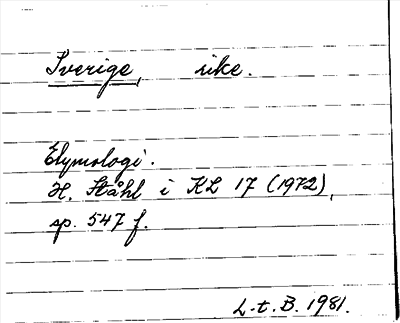 Sverige, rike.
Etymologi.
H. Ståhl i KL 17 (1972),
sp. 547 f.
L.t.B. 1981.